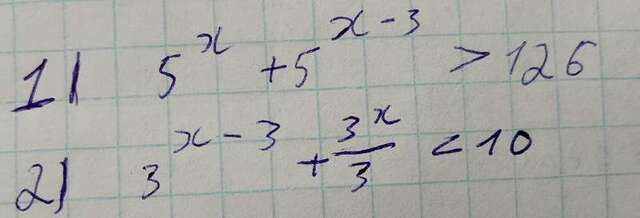 1) 5^x + 5^{x-3} > 126
2) 3^{x-3} + \frac{3^x}{3} < 10